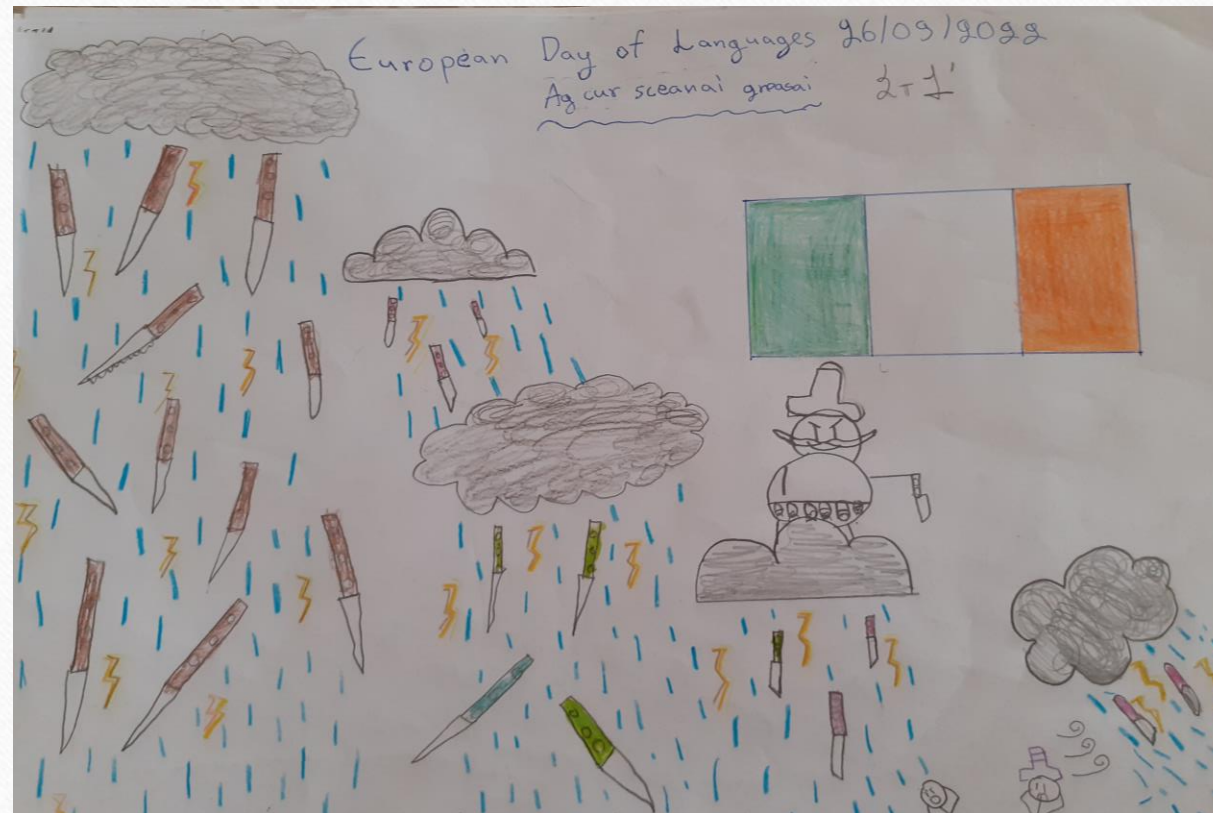 European Day of Languages 26/09/2022
Ag cur sceanai greasai